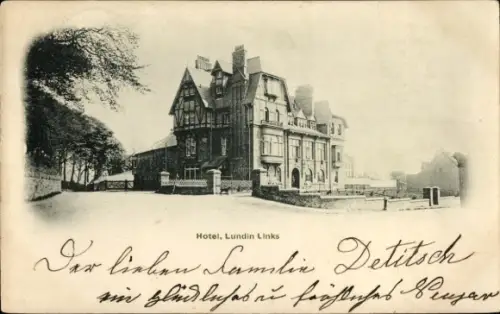 Hotel, Lundin Links
Der lieben Familie Detitsch
ein glückliches u fröhliches Neujar